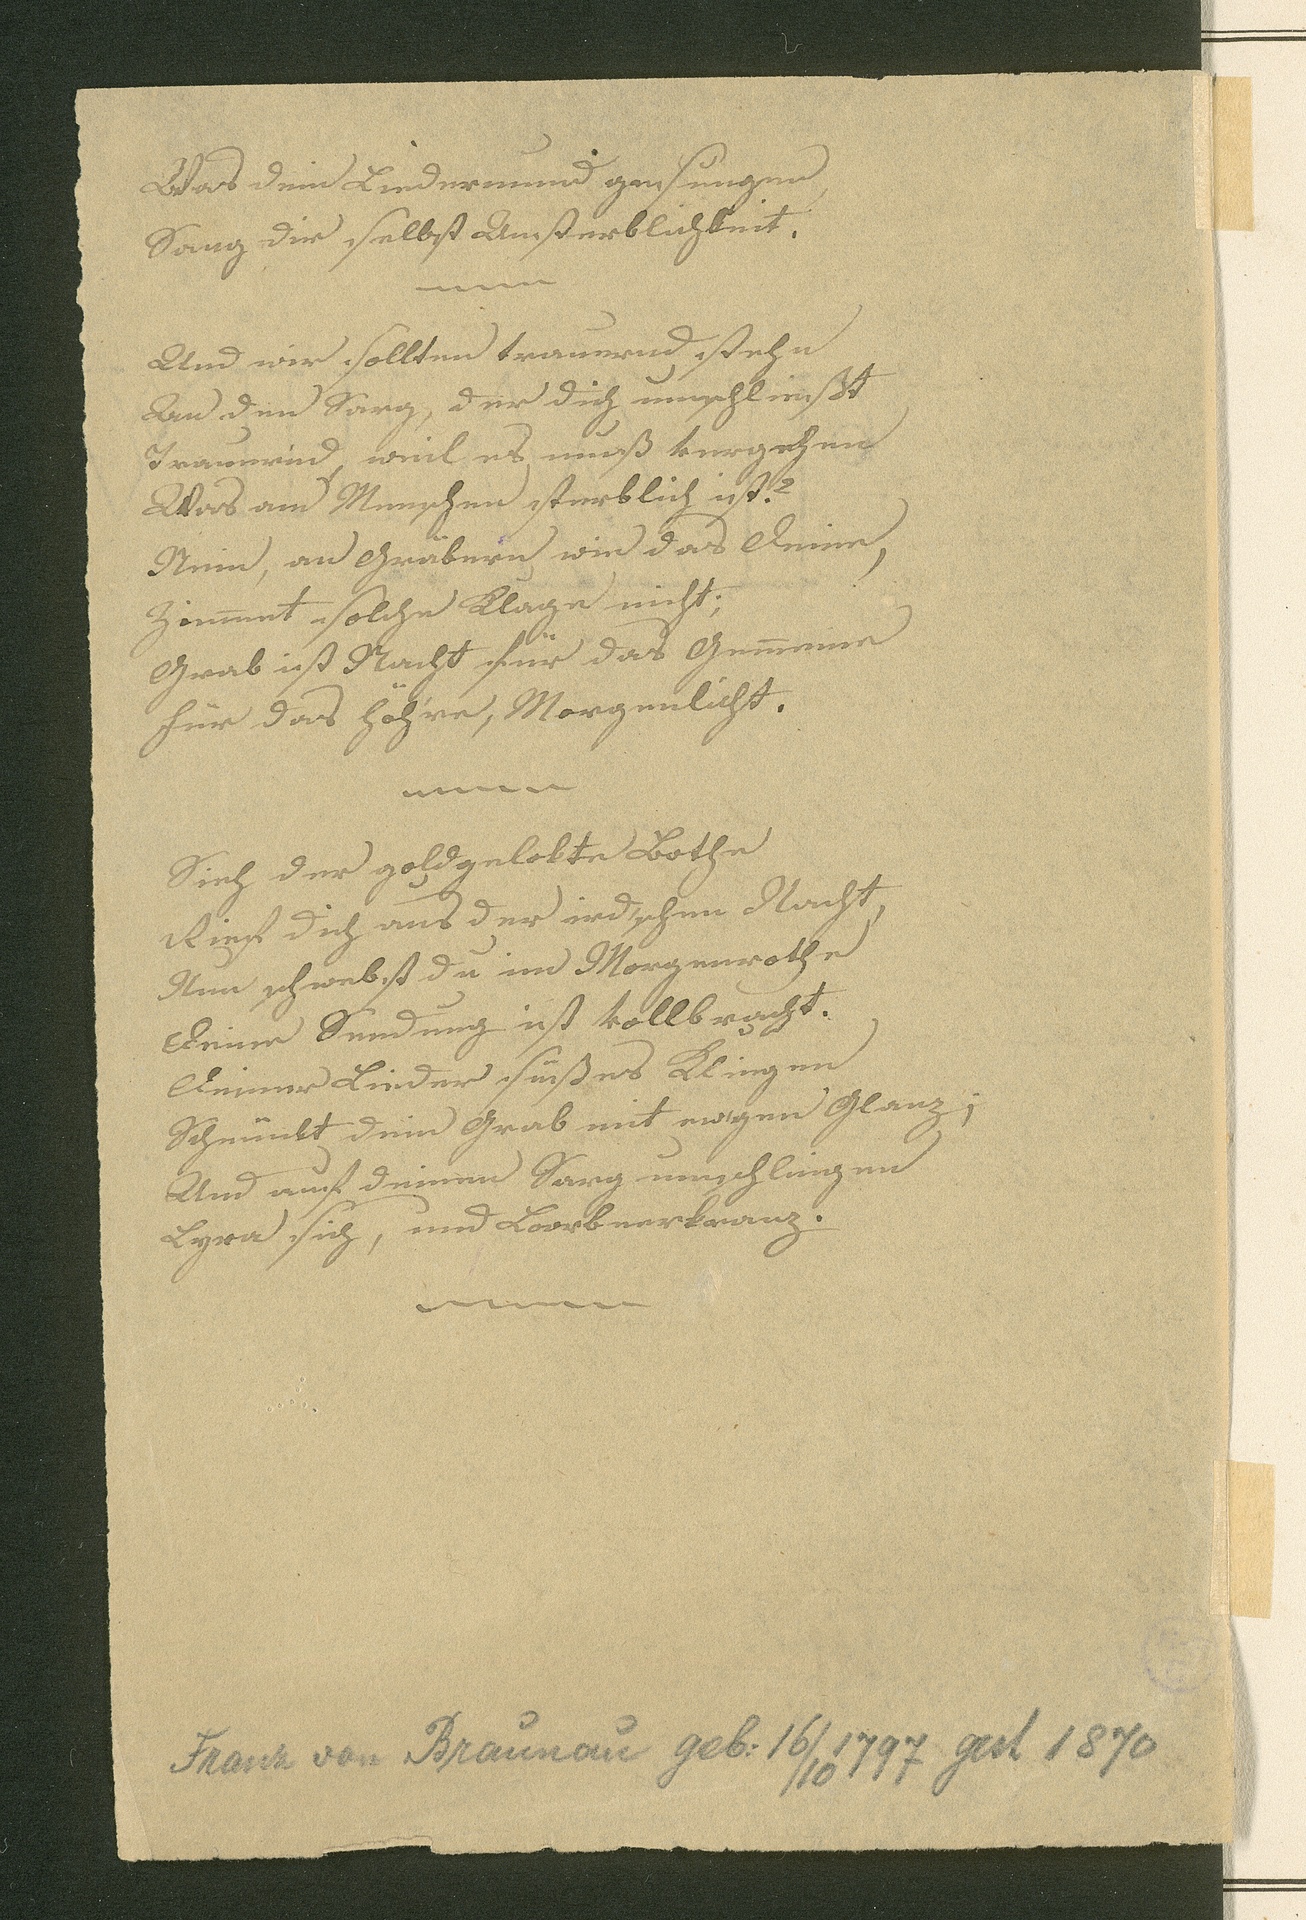 Was dein Liedermund gesungen,
Sang dir selbst Unsterblichkeit.
Und wir sollten trauernd stehn
An den Sarg, der dich umschließt
Trauernd, weil es muß vergehen
Was am Menschen sterblich ist?
Nein, an Gräbern wie das Deine,
Zimmet solche Klage nicht;
Grab ist Nacht für das Gemeine
Für das Höh're, Morgenlicht.
Sieh der goldgelokte Bothe
Rief dich aus der ird'schen Nacht,
Nun schwebst du im Morgenrothe
Deine Sendung ist vollbracht.
Deiner Lieder süßes Klingen
Schmückt dein Grab mit ewgen Glanz;
Und auf deinen Sarg umschlingen
Lyra sich, und Lorbeerkranz.
Frank von Braunau geb: 16/10 1797 gest 1870